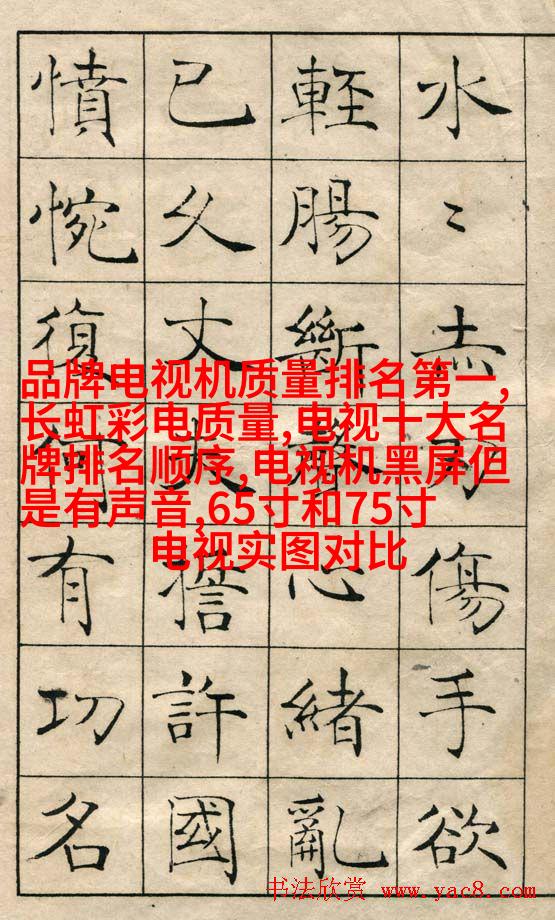 水〻赤刃傷手欲
輕腸斷聲心緒亂
已久丈夫誓許國
憤惋復何有功名
品牌电视机质量排名第一,
长虹彩电质量,电视十大名
牌排名顺序,电视机黑屏但
是有声音,65寸和75寸
电视实图对比
书法欣赏 www.yac8.com